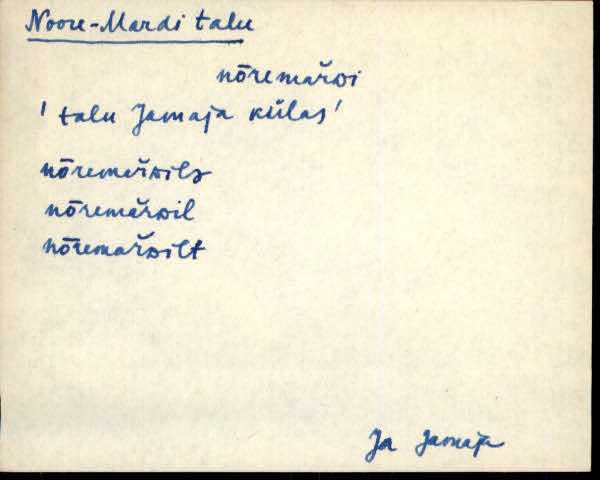 Noore-Mardi talu
nōremařᴅi
' talu Jamaja külas '
nōremařᴅilɜ
nōremařᴅil
nōremařᴅilt
Ja Jamaja